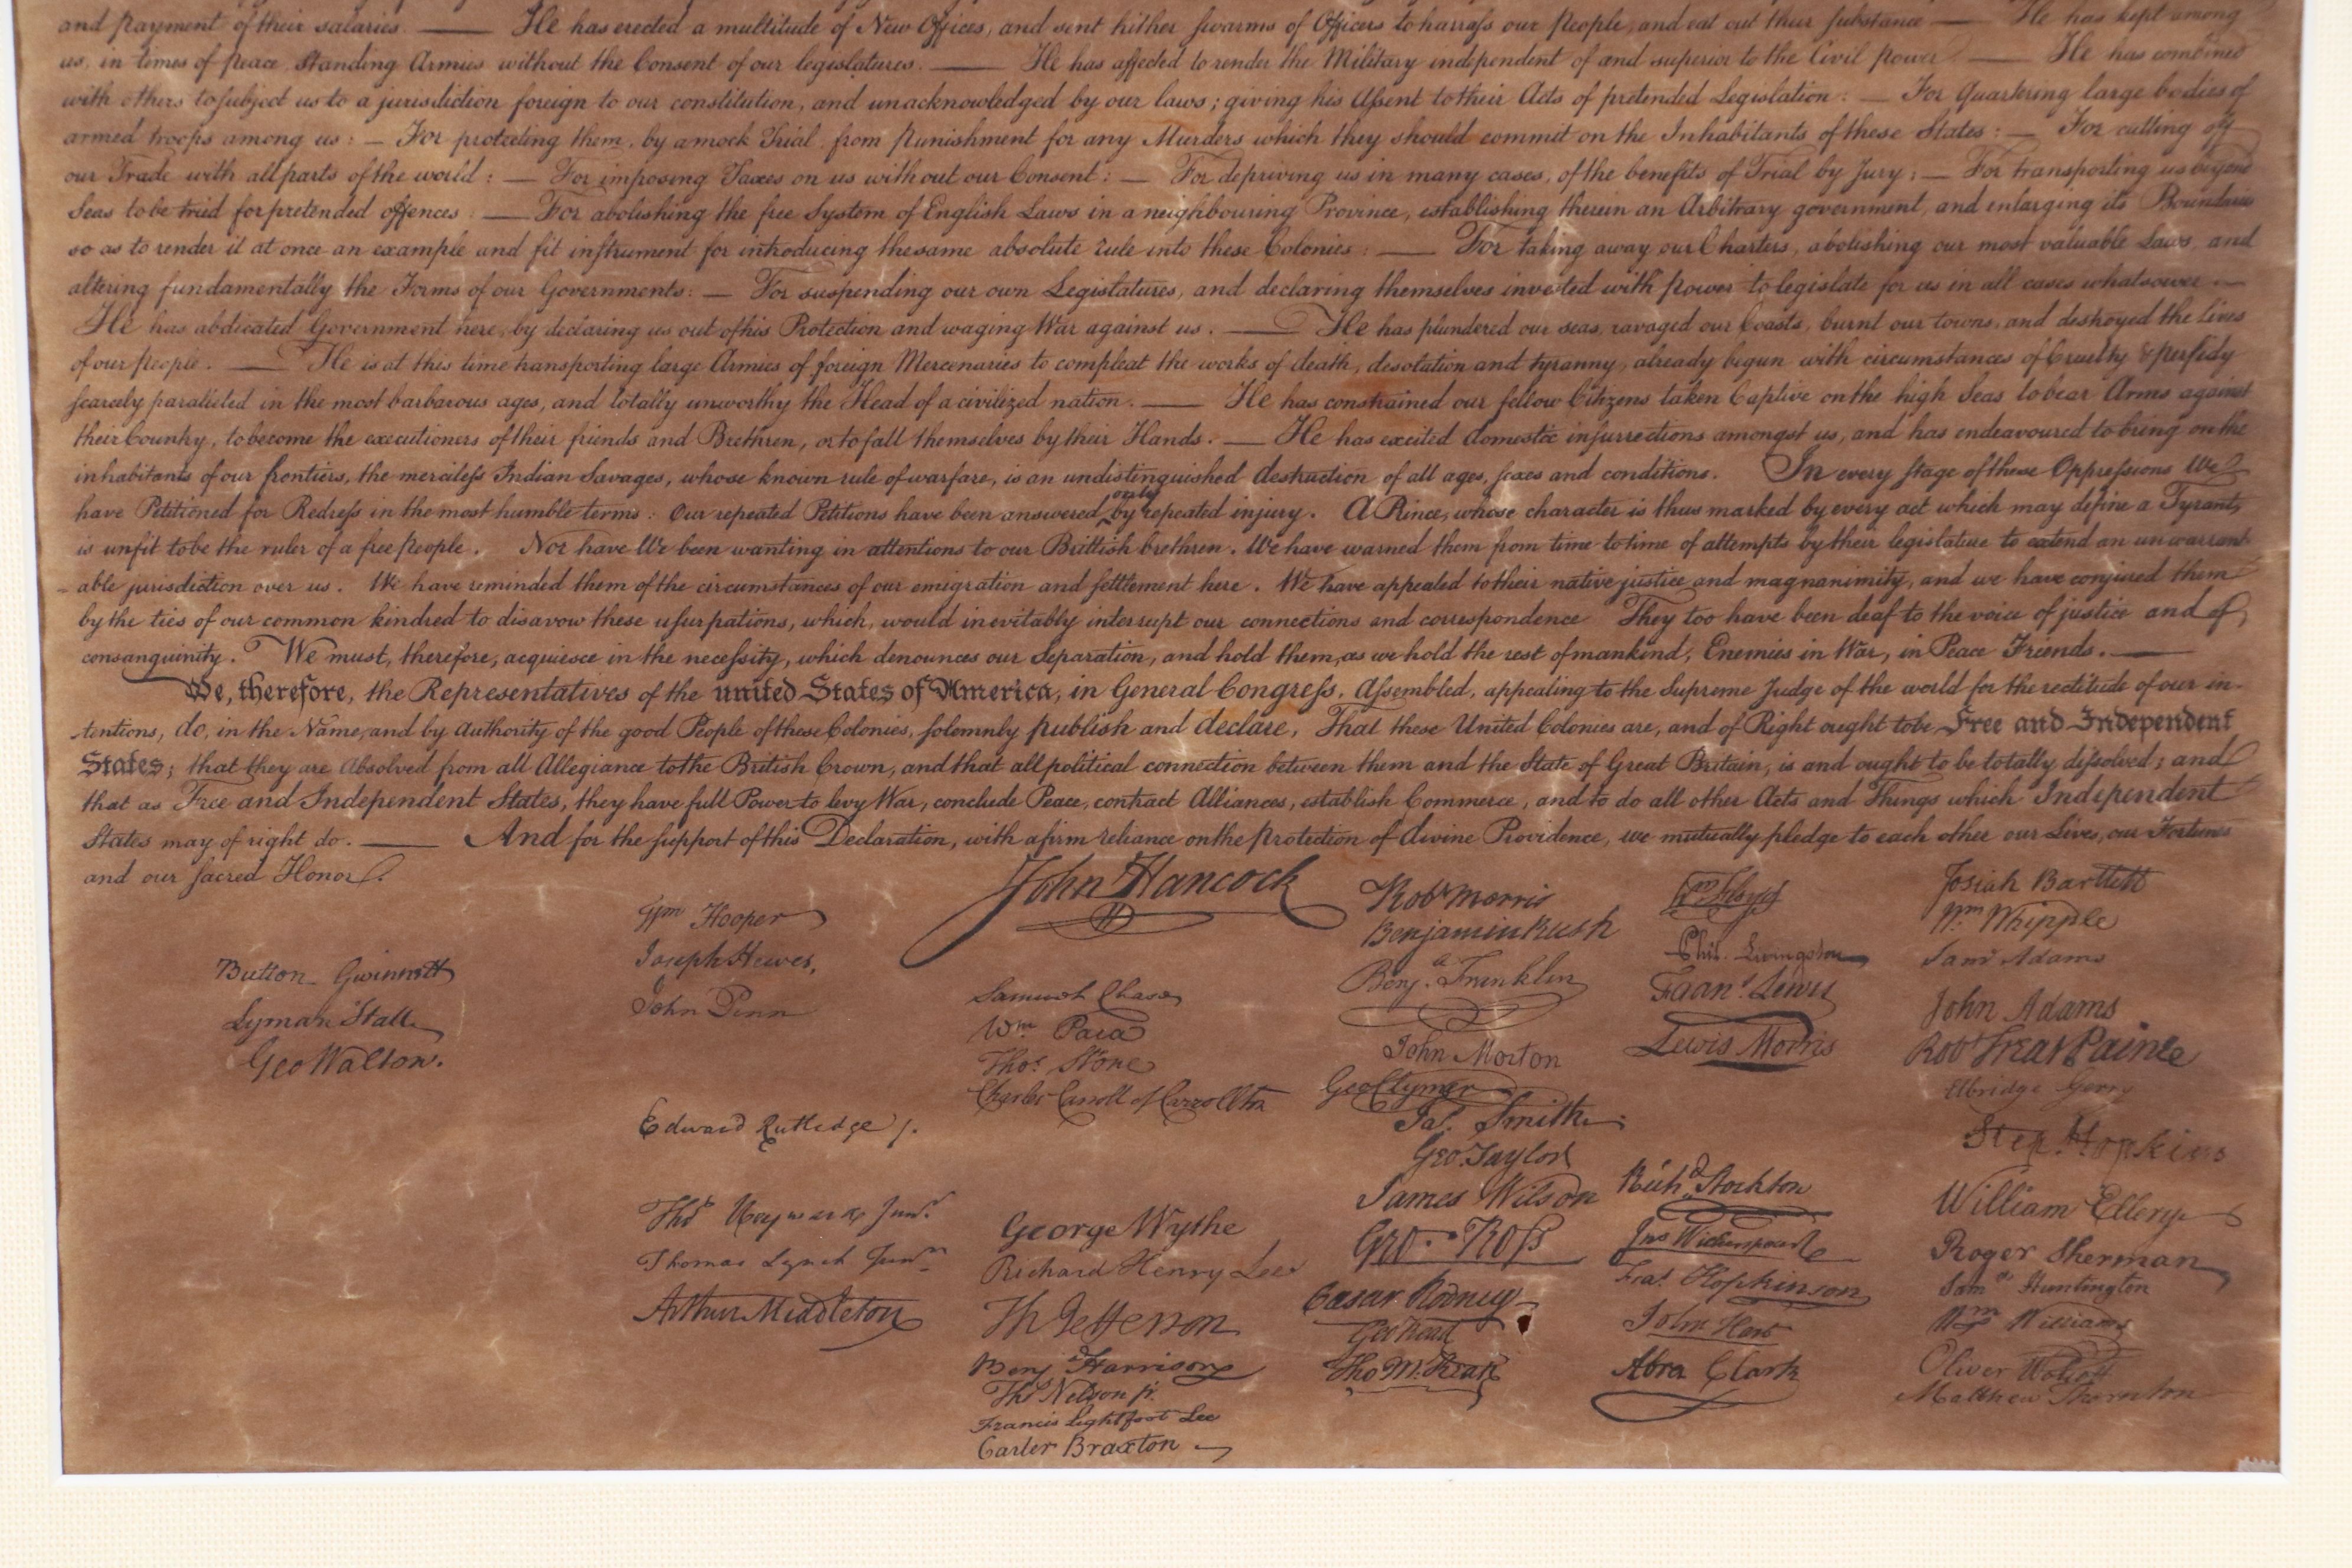 and payment of their salaries. — He has erected a multitude of New Offices, and sent hither swarms of Officers to harrass our People, and eat out their substance — He has kept among
us, in times of peace, Standing Armies without the Consent of our legislatures. — He has affected to render the Military independent of and superior to the Civil power — He has combined
with others to subject us to a jurisdiction foreign to our constitution, and unacknowledged by our laws; giving his Assent to their Acts of pretended Legislation: — For Quartering large bodies of
armed troops among us: — For protecting them, by a mock Trial, from punishment for any Murders which they should commit on the Inhabitants of these States: — For cutting off
our Trade with all parts of the world: — For imposing Taxes on us without our Consent: — For depriving us in many cases, of the benefits of Trial by Jury: — For transporting us beyond
Seas to be tried for pretended offences: — For abolishing the free System of English Laws in a neighbouring Province, establishing therein an Arbitrary government, and enlarging its Boundaries
so as to render it at once an example and fit instrument for introducing the same absolute rule into these Colonies: — For taking away our Charters, abolishing our most valuable Laws, and
altering fundamentally the Forms of our Governments: — For suspending our own Legislatures, and declaring themselves invested with power to legislate for us in all cases whatsoever. —
He has abdicated Government here, by declaring us out of his Protection and waging War against us. — He has plundered our seas, ravaged our Coasts, burnt our towns, and destroyed the lives
of our people. — He is at this time transporting large Armies of foreign Mercenaries to compleat the works of death, desolation and tyranny, already begun with circumstances of Cruelty & perfidy
scarcely paralleled in the most barbarous ages, and totally unworthy the Head of a civilized nation. — He has constrained our fellow Citizens taken Captive on the high Seas to bear Arms against
their Country, to become the executioners of their friends and Brethren, or to fall themselves by their Hands. — He has excited domestic insurrections amongst us, and has endeavoured to bring on the
inhabitants of our frontiers, the merciless Indian Savages, whose known rule of warfare, is an undistinguished destruction of all ages, sexes and conditions. In every stage of these Oppressions We
have Petitioned for Redress in the most humble terms: Our repeated Petitions have been answered only by repeated injury. A Prince, whose character is thus marked by every act which may define a Tyrant,
is unfit to be the ruler of a free people. Nor have We been wanting in attentions to our Brittish brethren. We have warned them from time to time of attempts by their legislature to extend an unwarrant-
-able jurisdiction over us. We have reminded them of the circumstances of our emigration and settlement here. We have appealed to their native justice and magnanimity, and we have conjured them
by the ties of our common kindred to disavow these usurpations, which, would inevitably interrupt our connections and correspondence They too have been deaf to the voice of justice and of
consanguinity. We must, therefore, acquiesce in the necessity, which denounces our Separation, and hold them, as we hold the rest of mankind, Enemies in War, in Peace Friends. —
We, therefore, the Representatives of the united States of America, in General Congress, Assembled, appealing to the Supreme Judge of the world for the rectitude of our in-
tentions, do, in the Name, and by Authority of the good People of these Colonies, solemnly publish and declare, That these United Colonies are, and of Right ought to be Free and Independent
States; that they are Absolved from all Allegiance to the British Crown, and that all political connection between them and the State of Great Britain, is and ought to be totally dissolved; and
that as Free and Independent States, they have full Power to levy War, conclude Peace, contract Alliances, establish Commerce, and to do all other Acts and Things which Independent
States may of right do. — And for the support of this Declaration, with a firm reliance on the protection of divine Providence, we mutually pledge to each other our Lives, our Fortunes
and our sacred Honor.
Button Gwinnett
Lyman Hall
Geo Walton.
Wm Hooper
Joseph Hewes,
John Penn
Edward Rutledge /.
Thos Heyward Junr.
Thomas Lynch Junr.
Arthur Middleton
John Hancock
Samuel Chase
Wm Paca
Thos Stone
Charles Carroll of Carrollton
George Wythe
Richard Henry Lee
Th Jefferson
Benj Harrison
Thos Nelson jr.
Francis Lightfoot Lee
Carter Braxton
Robt Morris
Benjamin Rush
Benj. Franklin
John Morton
Geo Clymer
Jas. Smith
Geo. Taylor
James Wilson
Geo. Ross
Caesar Rodney
Geo Read
Tho M:Kean
Wm Floyd
Phil. Livingston
Frans. Lewis
Lewis Morris
Richd. Stockton
Jno Witherspoon
Fras. Hopkinson
John Hart
Abra Clark
Josiah Bartlett
Wm Whipple
Saml Adams
John Adams
Robt Treat Paine
Elbridge Gerry
Step. Hopkins
William Ellery
Roger Sherman
Saml Huntington
Wm Williams
Oliver Wolcott
Matthew Thornton